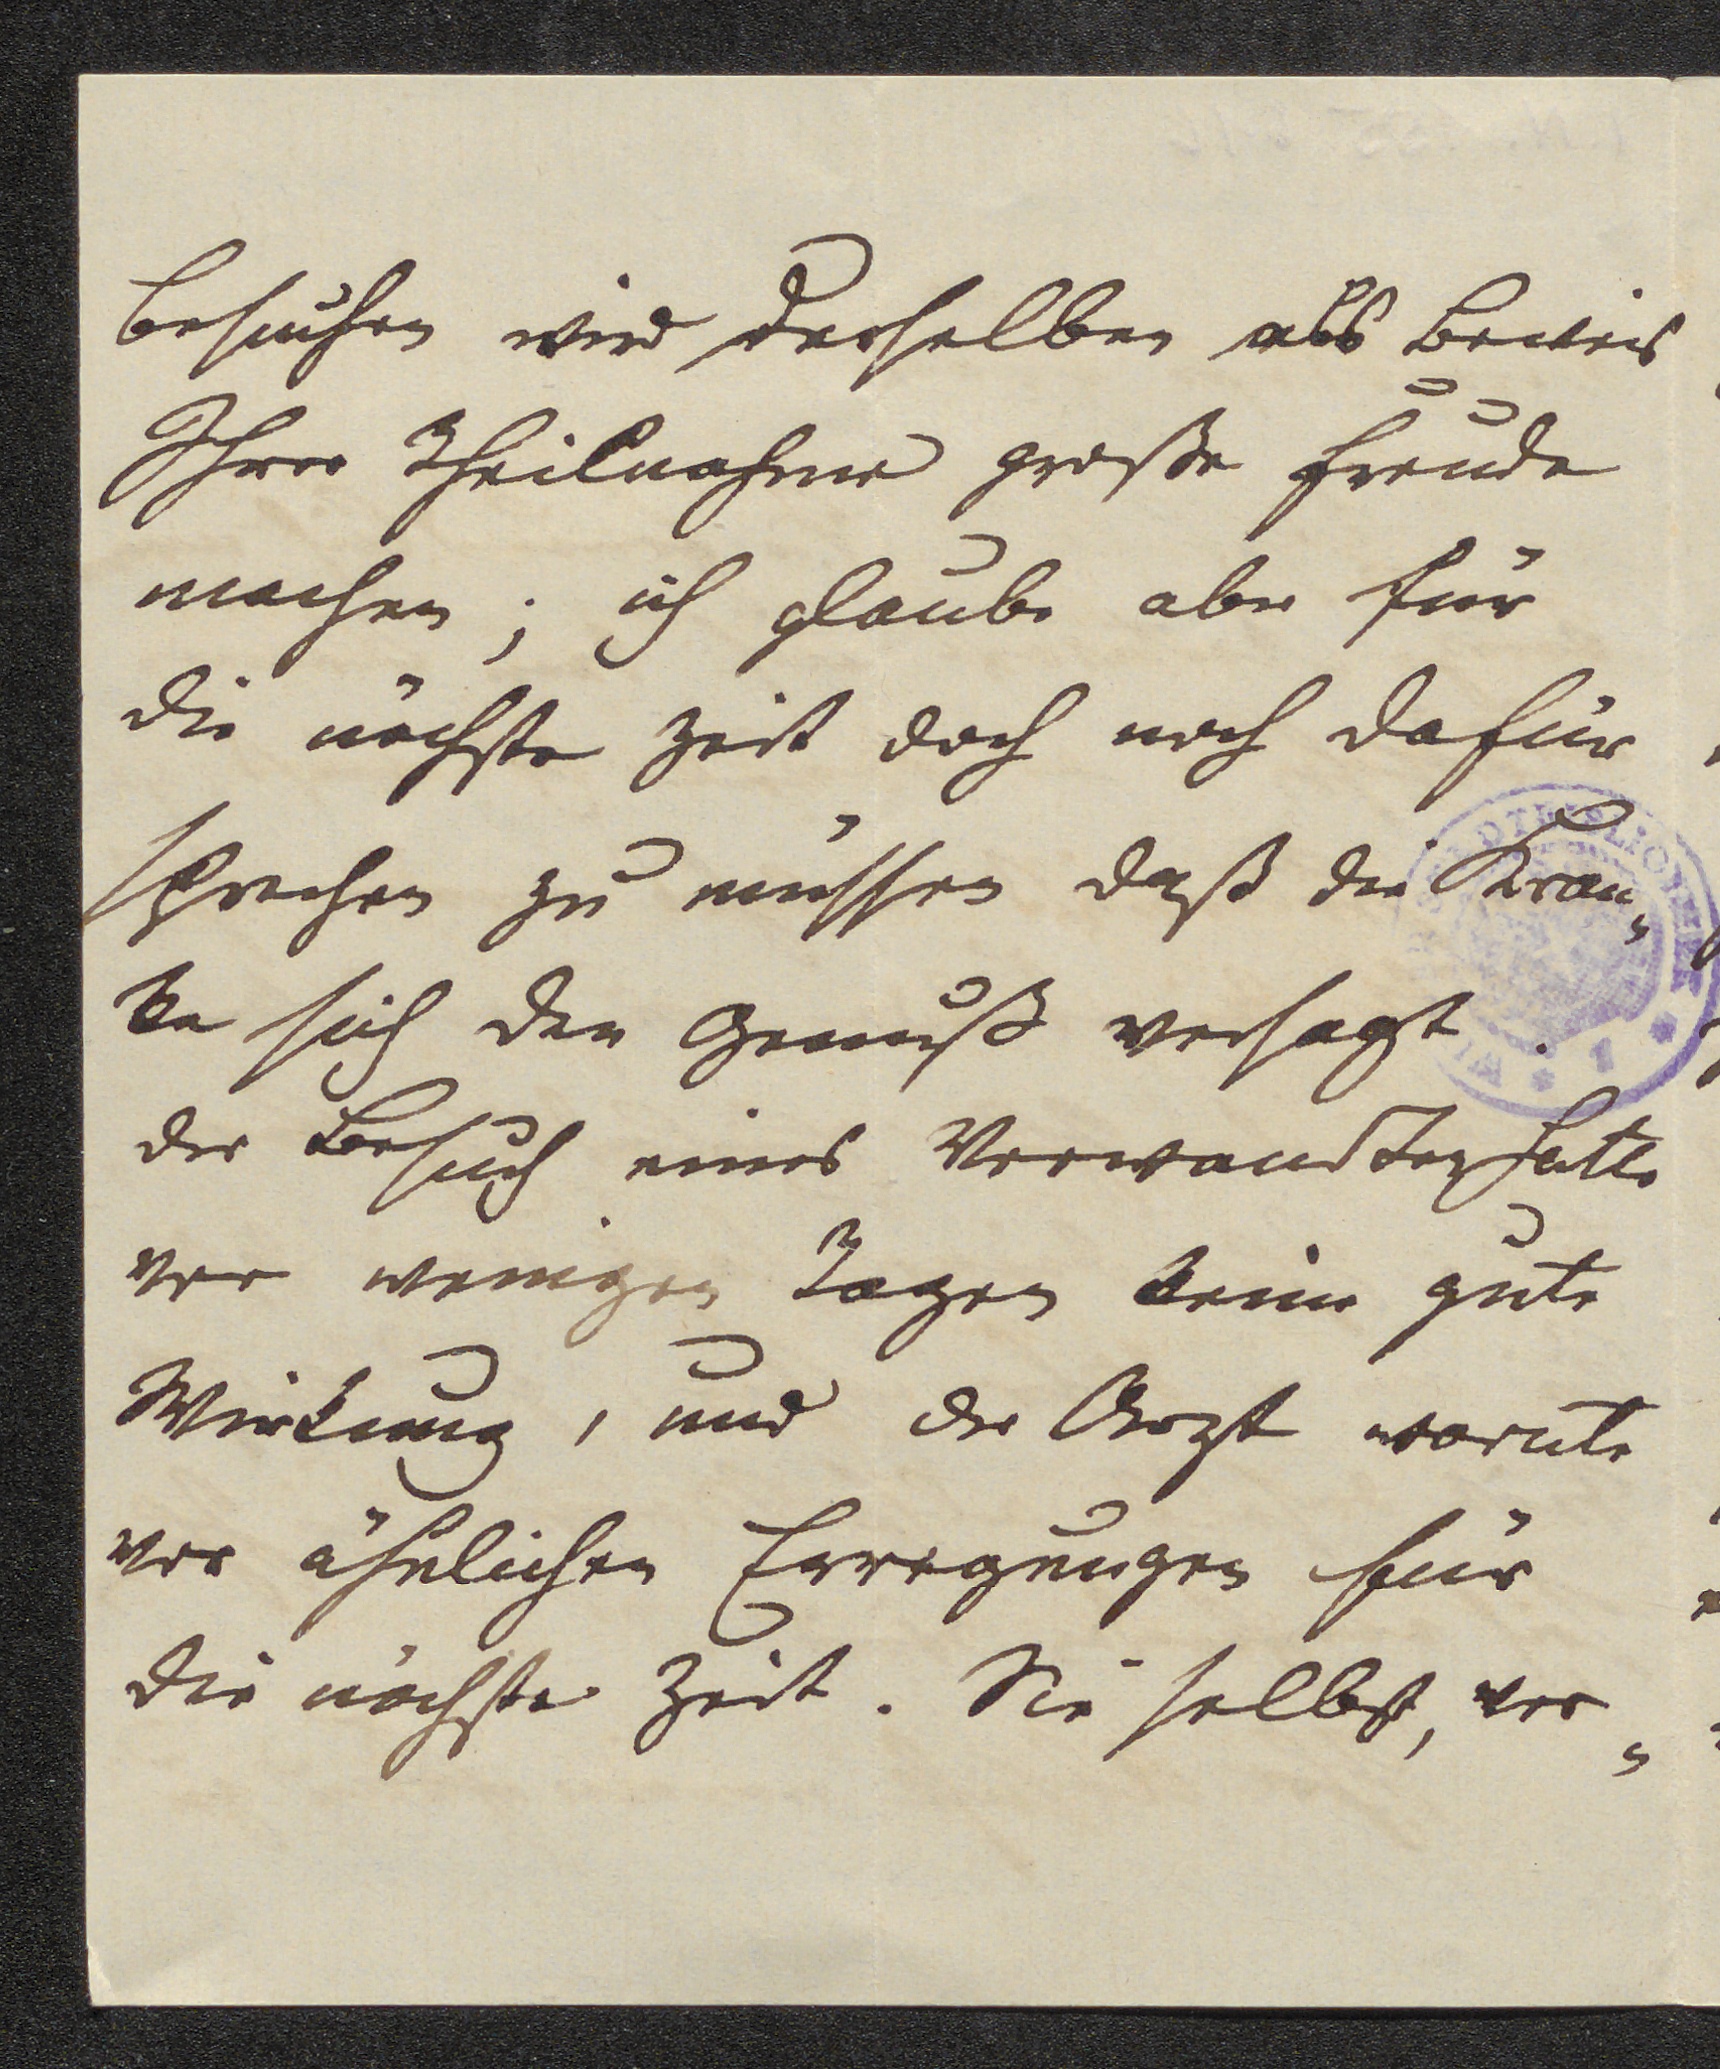 besuchen wird derselben als Beweis
Ihrer Theilnahme große Freude
machen; ich glaube aber für
die nächste Zeit doch noch dafür
sprechen zu müssen daß die Kran„
ke sich den Genuß versagt.
der Besuch eines Verwandten hatte
vor wenigen Tagen keine gute
Wirkung, und der Arzt warnte
vor ähnlichen Erregungen für
die nächste Zeit. Sie selbst, ver„